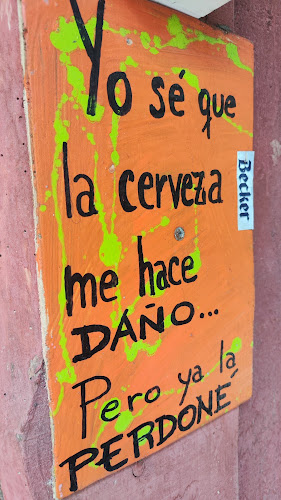 Yo sé que
la cerveza
me hace
DAÑO...
Pero ya lá
PERDONÉ
Becker